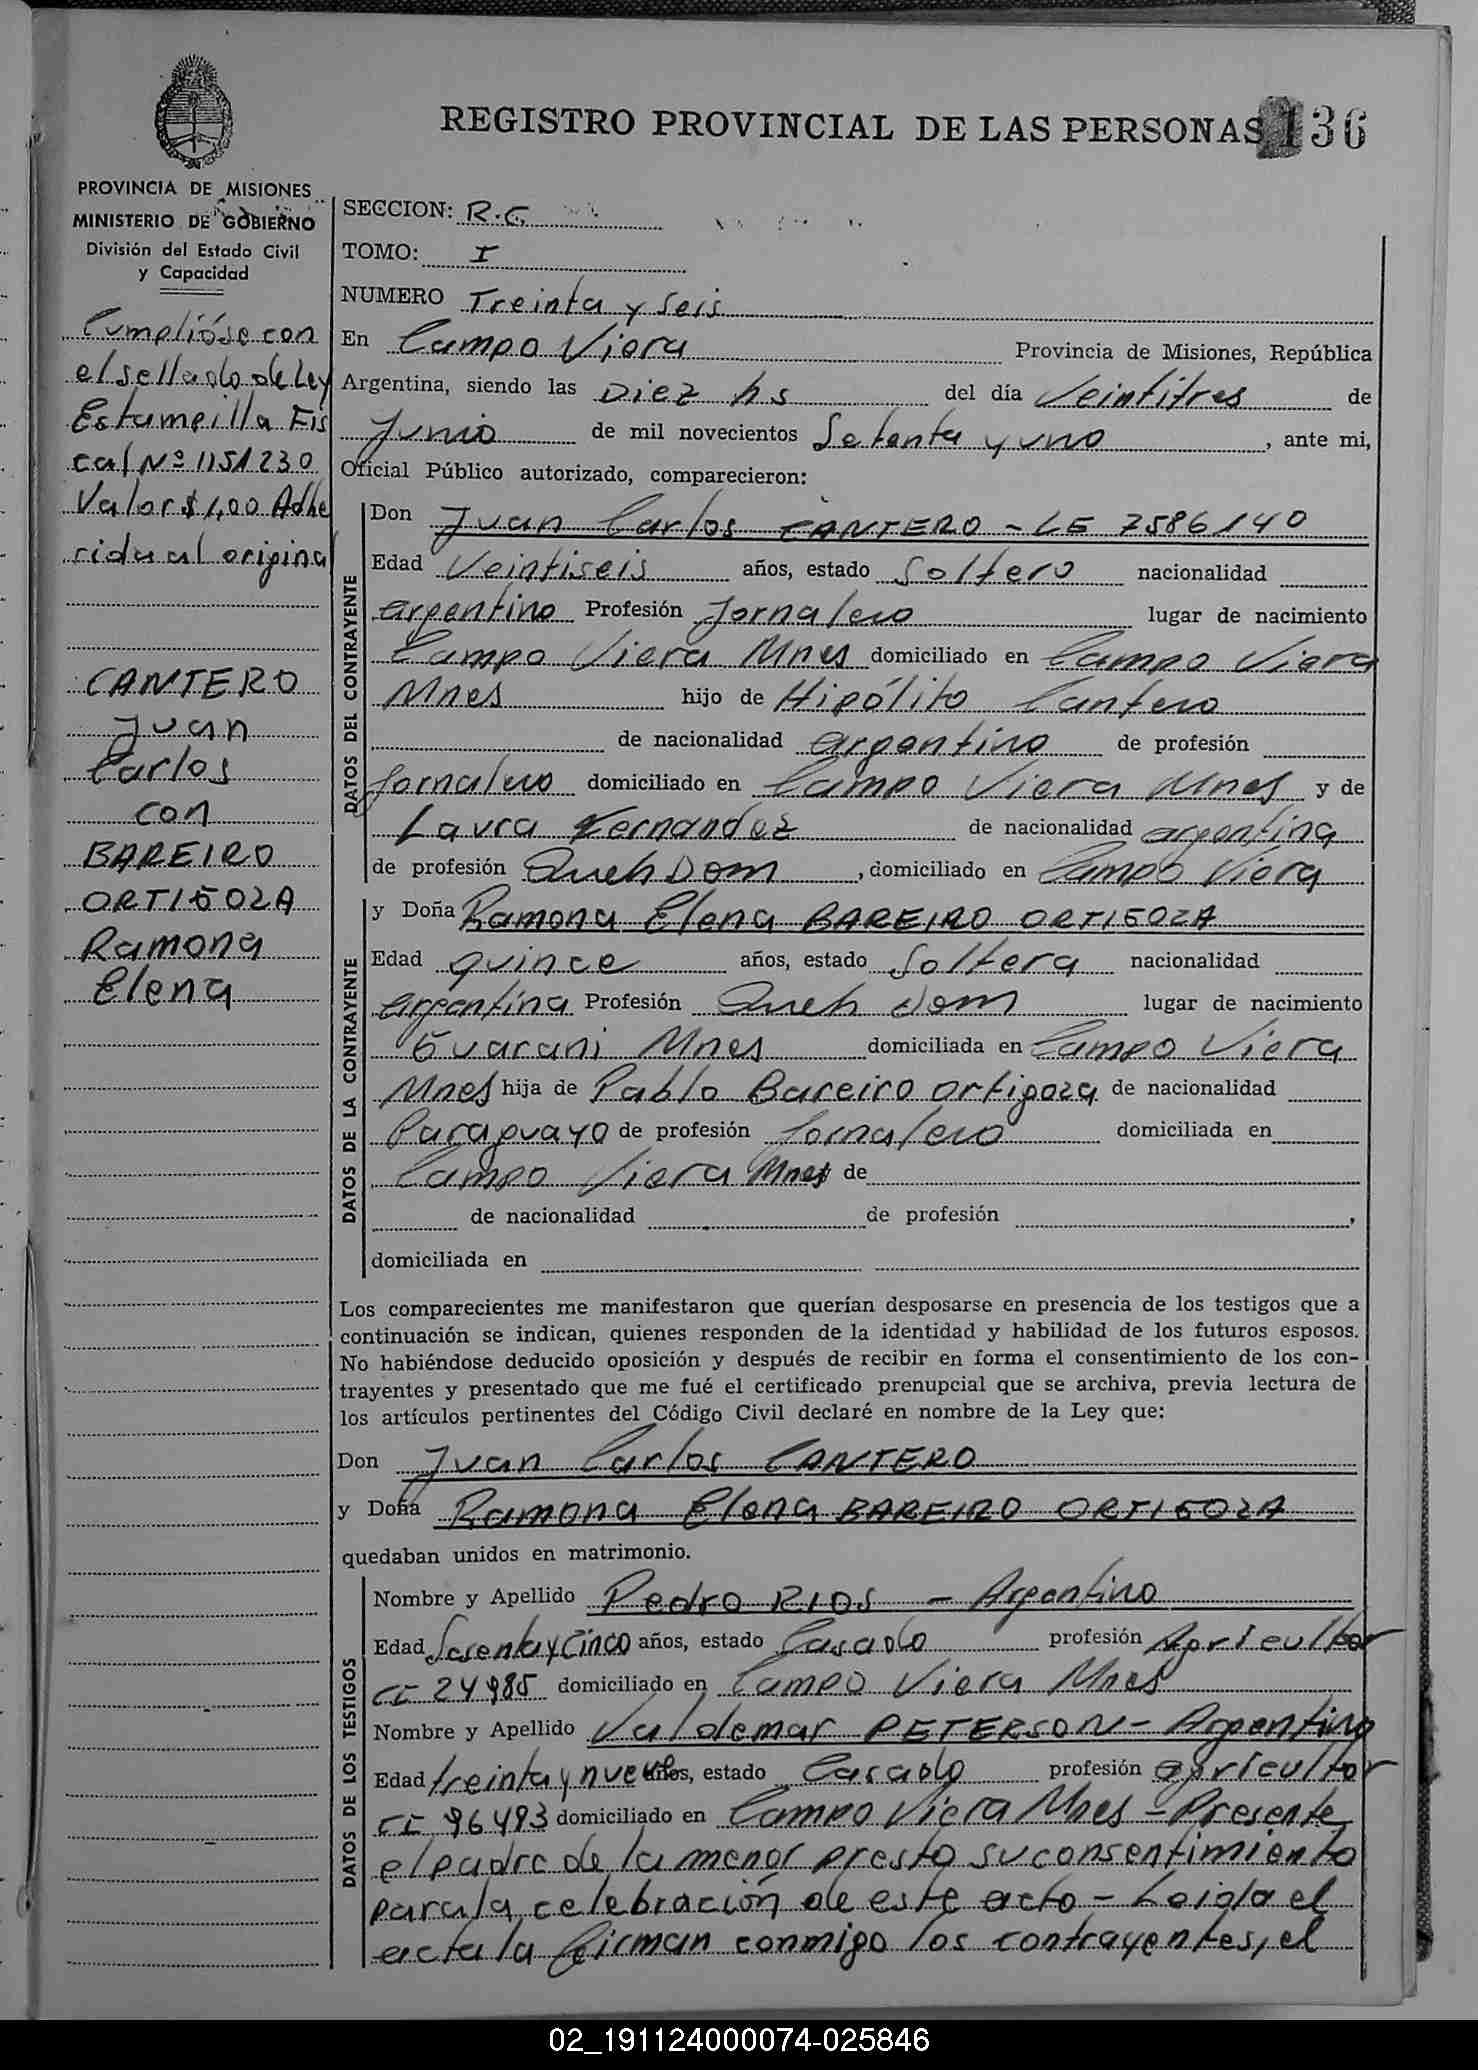 REGISTRO PROVINCIAL DE LAS PERSONAS 136
PROVINCIA DE MISIONES
MINISTERIO DE GOBIERNO
División del Estado Civil
y Capacidad
Cumplióse con
el sellado de Ley
Estampilla Fis
cal Nº 1151230
Valor $ 1,00 Adhe
rida al original
CANTERO
Juan
Carlos
con
BAREIRO
ORTIGOZA
Ramona
Elena
SECCION: R.C
TOMO: I
NUMERO Treinta y Seis
En Campo Viera Provincia de Misiones, República
Argentina, siendo las Diez hs del día Veintitres de
Junio de mil novecientos Setenta y uno, ante mi,
Oficial Público autorizado, comparecieron:
DATOS DEL CONTRAYENTE
Don Juan Carlos CANTERO - LE 7586140
Edad Veintiseis años, estado Soltero nacionalidad
argentino Profesión Jornalero lugar de nacimiento
Campo Viera Mnes domiciliado en Campo Viera
Mnes hijo de Hipólito Cantero
de nacionalidad argentino de profesión
Jornalero domiciliado en Campo Viera Mnes y de
Laura Fernandez de nacionalidad argentina
de profesión Queh Dom, domiciliado en Campo Viera
DATOS DE LA CONTRAYENTE
y Doña Ramona Elena BAREIRO ORTIGOZA
Edad quince años, estado Soltera nacionalidad
argentina Profesión Queh dom lugar de nacimiento
Guarani Mnes domiciliada en Campo Viera
Mnes hija de Pablo Bareiro Ortigoza de nacionalidad
Paraguayo de profesión Jornalero domiciliada en
Campo Viera Mnes de
de nacionalidad de profesión ,
domiciliada en
Los comparecientes me manifestaron que querían desposarse en presencia de los testigos que a
continuación se indican, quienes responden de la identidad y habilidad de los futuros esposos.
No habiéndose deducido oposición y después de recibir en forma el consentimiento de los con-
trayentes y presentado que me fué el certificado prenupcial que se archiva, previa lectura de
los artículos pertinentes del Código Civil declaré en nombre de la Ley que:
Don Juan Carlos CANTERO
y Doña Ramona Elena BAREIRO ORTIGOZA
quedaban unidos en matrimonio.
DATOS DE LOS TESTIGOS
Nombre y Apellido Pedro RIOS - Argentino
Edad Sesenta y Cinco años, estado Casado profesión Agricultor
CI 24985 domiciliado en Campo Viera Mnes
Nombre y Apellido Valdemar PETERSON - Argentino
Edad treinta y nueve años, estado Casado profesión agricultor
CI 96493 domiciliado en Campo Viera Mnes - Presente
el padre de la menor presto su consentimiento
para la celebración de este acto - Leida el
acta la firman conmigo los contrayentes, el
02_191124000074-025846